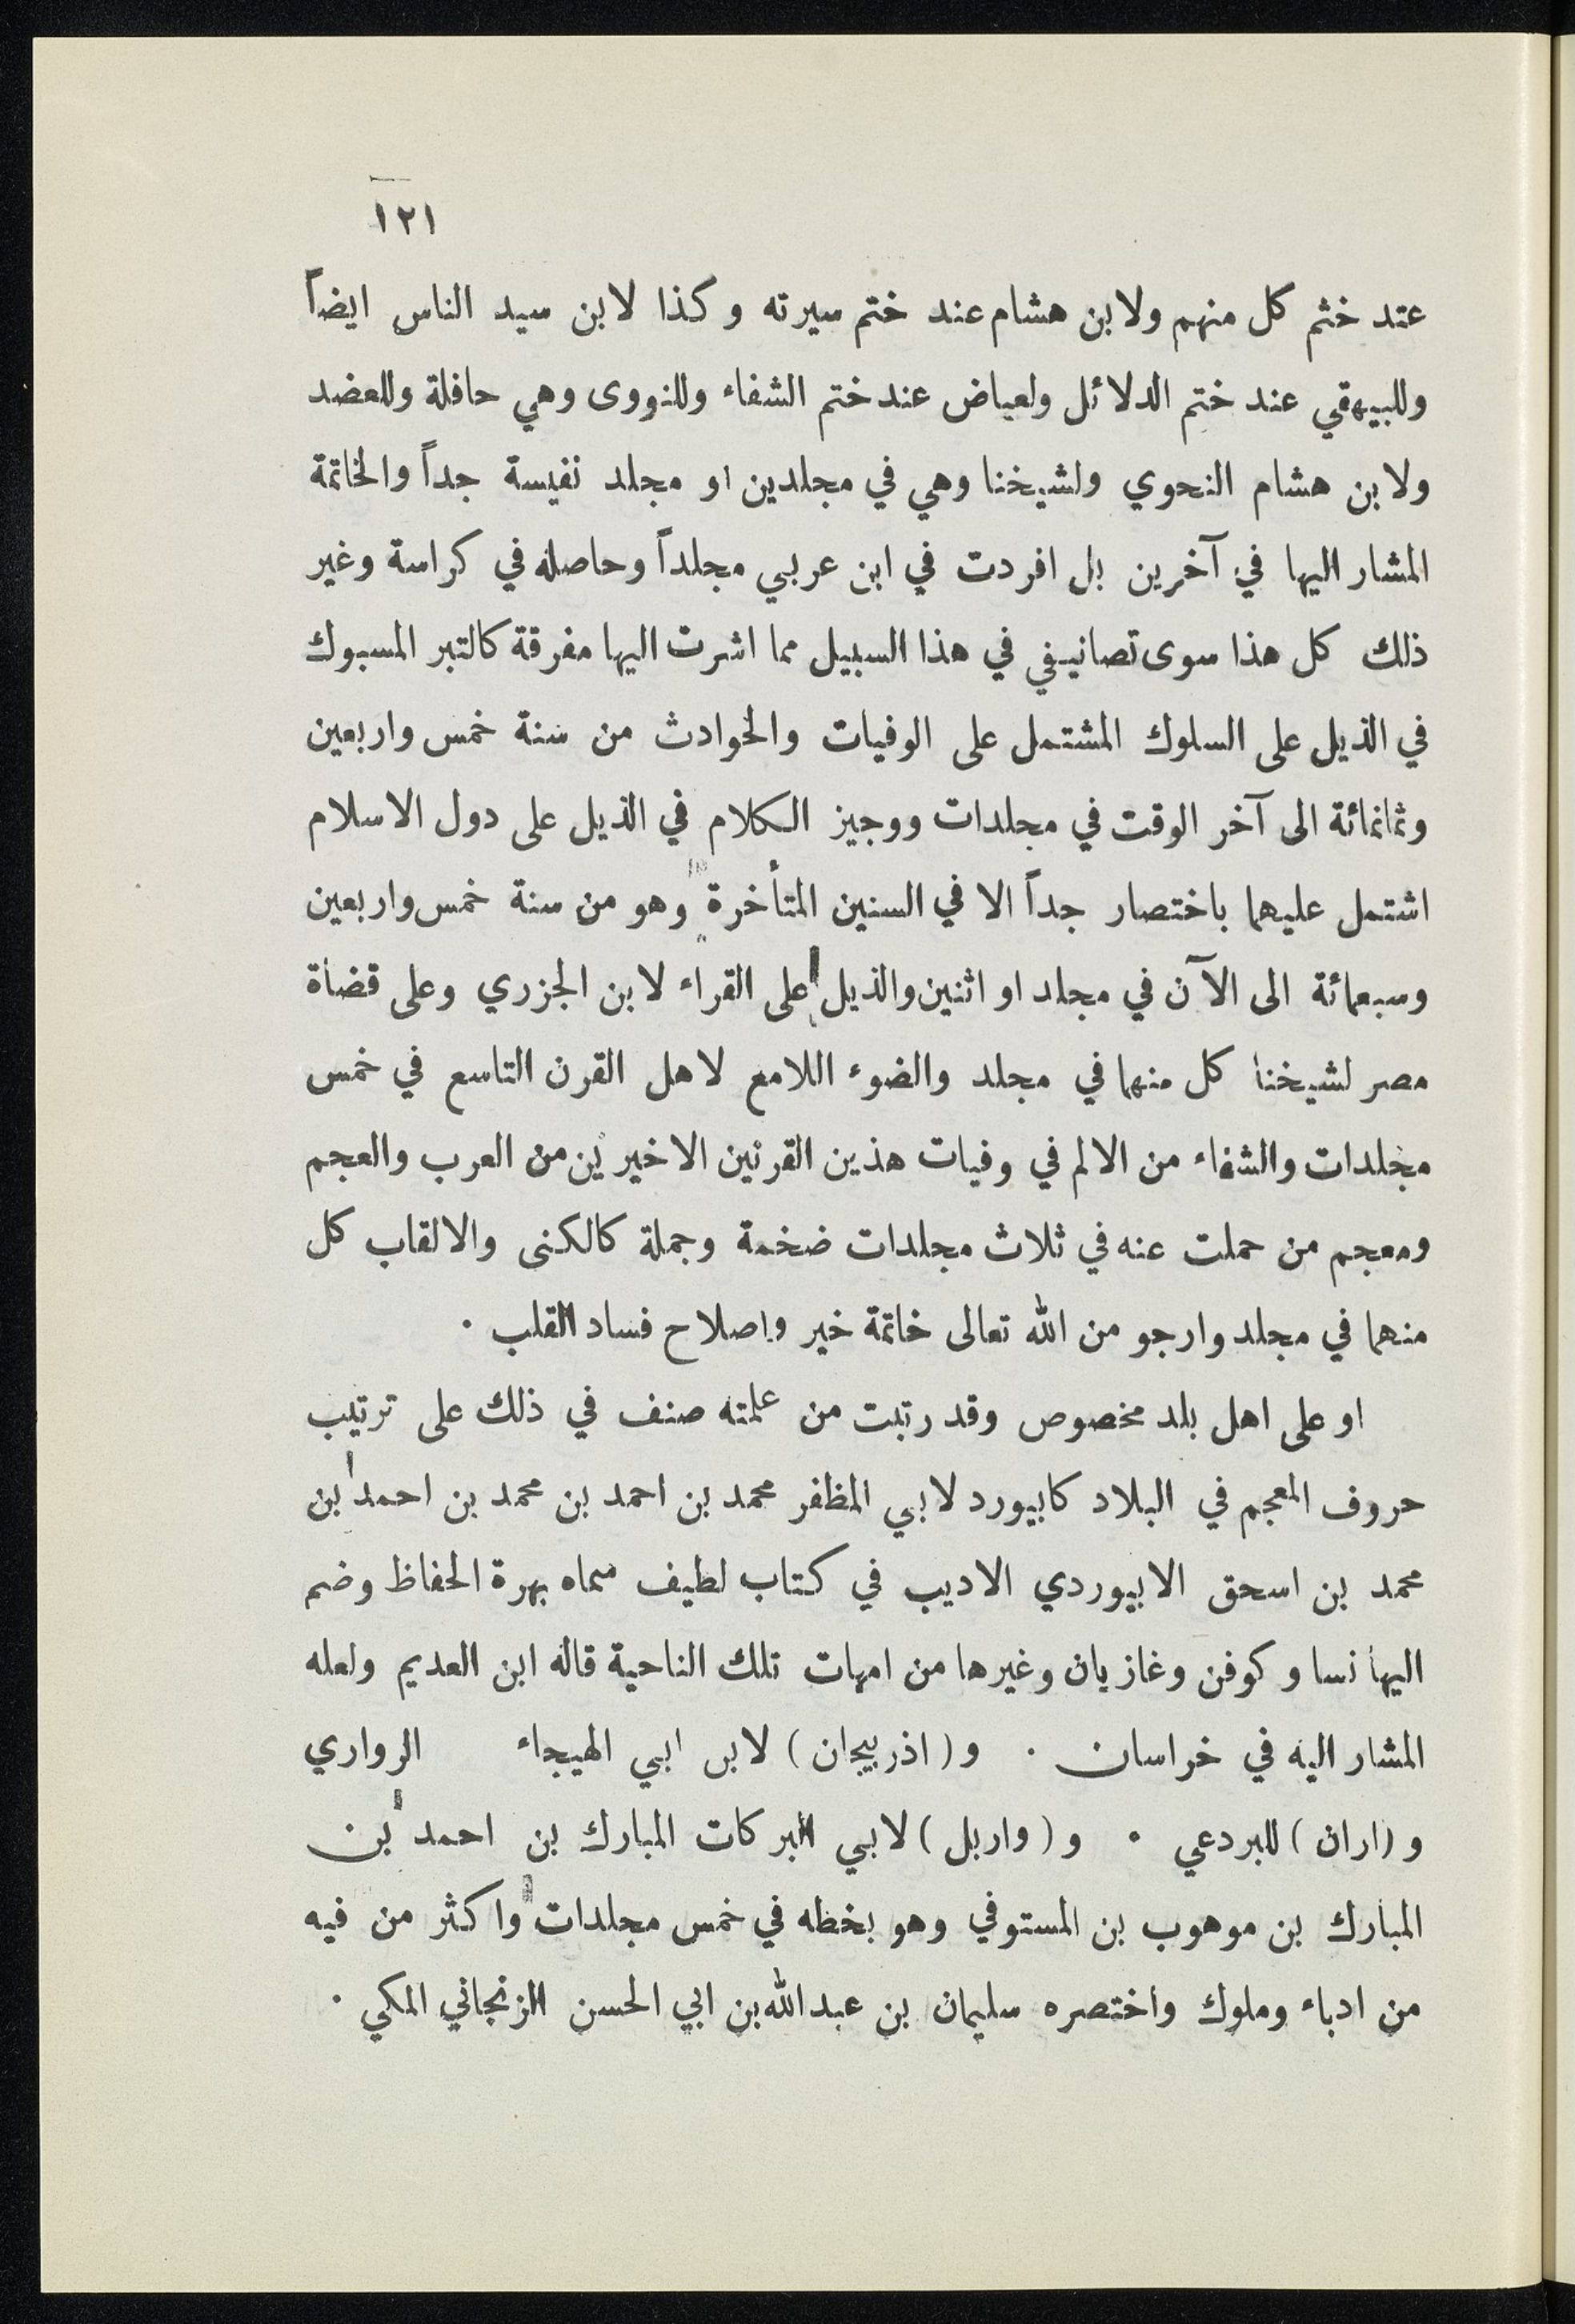 ١٢١
عند ختم كل منهم ولابن هشام عند ختم سيرته وكذا لابن سيد الناس ايضاً
وللبيهقي عند ختم الدلائل ولعياض عند ختم الشفاء وللنووى وهي حافلة وللعضد
ولابن هشام النحوي ولشيخنا وهي في مجلدين او مجلد نفيسة جداً والخاتمة
المشار اليها في آخرين بل افردت في ابن عربي مجلداً وحاصله في كراسة وغير
ذلك كل هذا سوى تصانيفي في هذا السبيل مما اشرت اليها مفرقة كالتبر المسبوك
في الذيل على السلوك المشتمل على الوفيات والحوادث من سنة خمس واربعين
وثمانمائة الى آخر الوقت في مجلدات ووجيز الكلام في الذيل على دول الاسلام
اشتمل عليهما باختصار جداً الا في السنين المتأخرة وهو من سنة خمس واربعين
وسبعمائة الى الآن في مجلد او اثنين والذيل على القراء لابن الجزري وعلى قضاة
مصر لشيخنا كل منهما في مجلد والضوء اللامع لاهل القرن التاسع في خمس
مجلدات والشفاء من الالم في وفيات هذين القرنين الاخيرين من العرب والعجم
ومعجم من حملت عنه في ثلاث مجلدات ضخمة وجملة كالكنى والالقاب كل
منهما في مجلد وارجو من الله تعالى خاتمة خير واصلاح فساد القلب .
او على اهل بلد مخصوص وقد رتبت من علمته صنف في ذلك على ترتيب
حروف المعجم في البلاد كابيورد لابي المظفر محمد بن احمد بن محمد بن احمد بن
محمد بن اسحق الابيوردي الاديب في كتاب لطيف سماه بهرة الحفاظ وضم
اليها نسا وكوفن وغازيان وغيرها من امهات تلك الناحية قاله ابن العديم ولعله
المشار اليه في خراسان . و ( اذربيجان ) لابن ابي الهيجاء الرواري
و ( اران ) للبردعي . و ( واربل ) لابي البركات المبارك بن احمد بن
المبارك بن موهوب بن المستوفي وهو بخطه في خمس مجلدات واكثر من فيه
من ادباء وملوك واختصره سليمان بن عبدالله بن ابي الحسن الزنجاني المكي .